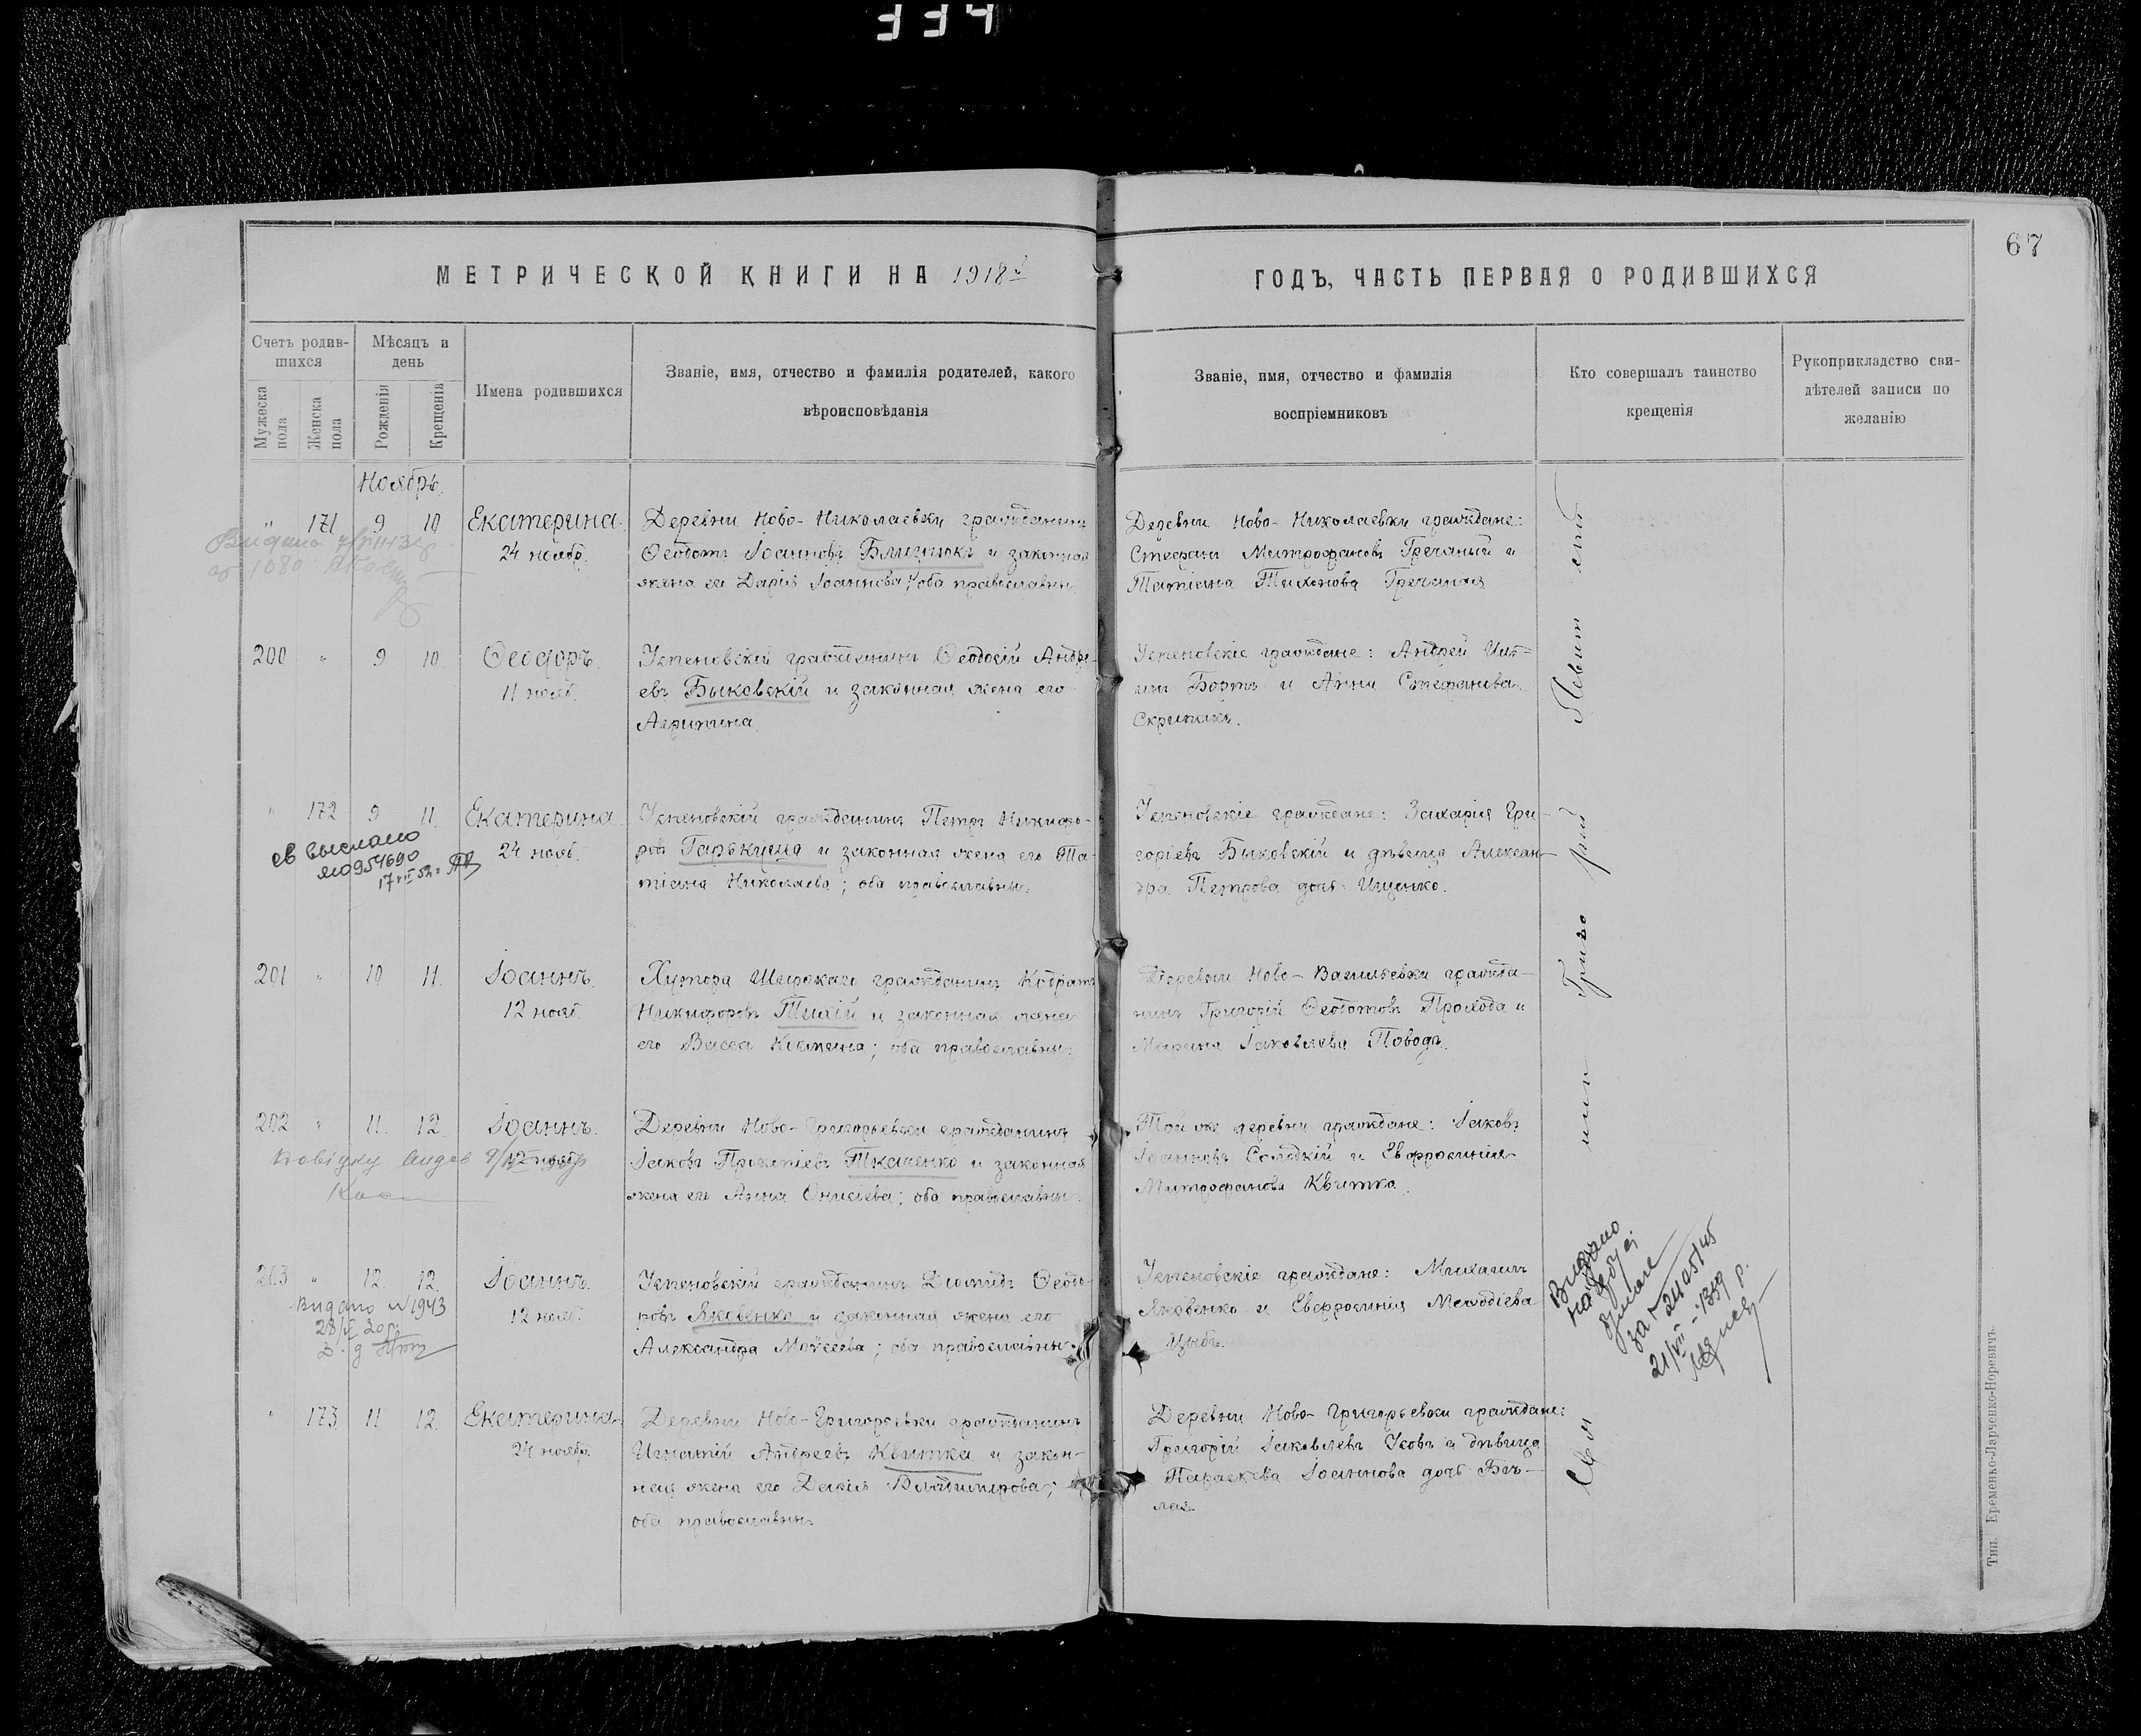 334
67
МЕТРИЧЕСКОЙ КНИГИ НА 1918й
ГОДЪ, ЧАСТЬ ПЕРВАЯ О РОДИВШИХСЯ
Счетъ родив-
шихся
Мужеска
пола
Женска
пола
Мѣсяцъ и
день
Рожденія
Крещенія
Имена родившихся
Званіе, имя, отчество и фамилія родителей, какого
вѣроисповѣданія
Званіе, имя, отчество и фамилія
воспріемниковъ
Кто совершалъ таинство
крещенія
Рукоприкладство сви-
дѣтелей записи по
желанію
Ноябрь.
" 171 9 10 Екатерина.
24 ноябр.
Деревни Ново-Николаевки гражданинъ
Ѳеодотъ Іоанновъ Близнюкъ и законная
жена его Дарія Іоаннова; оба православны.
Деревни Ново-Николаевки граждане:
Стефанъ Митрофановъ Гречаный и
Татіана Тихонова Гречаная
200 " 9 10 Ѳеодоръ.
11 нояб.
Успеновскій гражданинъ Ѳеодосій Андре-
евъ Быковскій и законная жена его
Агрипина.
Успеновскіе граждане: Андрей
Бортъ и Анна Стефанова
Скрипикъ.
" 172 9 11. Екатерина
24 нояб.
св выслано
ЯЮ954690
17 VII 52г
Успеновскій гражданинъ Петръ Никифо-
ровъ Гарькуша и законная жена его Та-
тіана Николаева; оба православны.
Успеновскіе граждане: Захарія Гри-
горіевъ Быковскій и дѣвица Алексан-
дра Петрова дочь Ищенко.
201 " 10 11. Іоаннъ.
12 нояб.
Хутора Широкаго гражданинъ Кодратъ
Никифоровъ Тихій и законная жена
его Васса ; оба православны.
Деревни Ново-Васильевки гражда-
нинъ Григорій Ѳеодотовъ Прохода и
Марина Іаковлева Поводъ.
202 " 11. 12. Іоаннъ.
12 нояб.
Довідку видав
Деревни Ново-Григорьевки гражданинъ
Іаковъ Прокопіевъ Ткаченко и законная
жена его Анна Онисіева; оба православны.
Той же деревни граждане: Іаковъ
Іоанновъ Солодкій и Евфросинія
Митрофанова Квитка.
203 " 12. 12. Іоаннъ.
12 нояб.
Видано N 1943
28/V 30р.
Успеновскій гражданинъ Діомидъ Ѳеодо-
ровъ Яковенко и законная жена его
Александра Моѵсеева; оба православны.
Успеновскіе граждане: Михаилъ
Яковенко и Евфросинія Меѳодіева
Цыбъ.
Видано
за
21/VII-1939 р.
" 173. 11 12. Екатерина.
24 ноябр.
Деревни Ново-Григорьевки гражданинъ
Игнатій Андреевъ Квитка и закон-
ная жена его Дарія Владимірова;
оба православны.
Деревни Ново-Григорьевки граждане:
Григорій Іаковлевъ Усовъ и дѣвица
Параскева Іоаннова дочь Бѣ-
лая.
Тип. Еременко-Ларченко-Норевичъ.